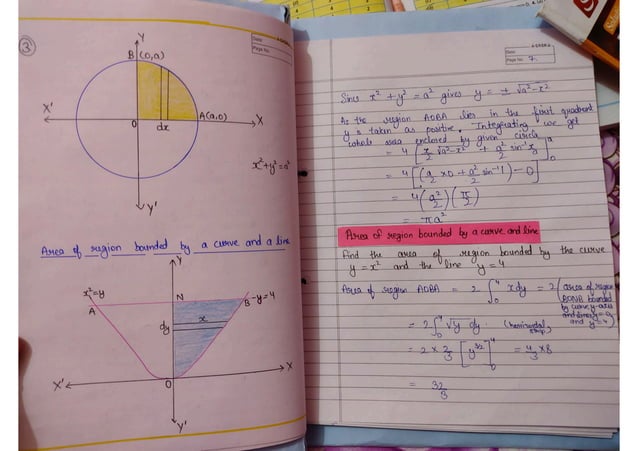 3
Y
B (0,a)
X'
O
dx
A(a,0)
X
x²+y²=a²
Y'
Area of region bounded by a curve and a line
Y
x²=y
A
N
B
y=4
dy
x
X'
O
X
Y'
Date:
Page No. 7.
Since x² + y² = a² gives y = ± √a²-x²
As the region AOBA lies in the first quadrant
y is taken as positive. Integrating, we get
whole area enclosed by given circle
= 4 [x/2 √a²-x² + a²/2 sin⁻¹ x/a]ᵃ₀
= 4 [(a/2 x0 + a²/2 sin⁻¹1) - 0]
= 4 (a²/2) (π/2)
= πa²
Area of region bounded by a curve and line
Find the area of region bounded by the curve
y = x² and the line y = 4
Area of region AOBA = 2 ∫₀⁴ xdy = 2 (area of region
BONB bounded
by curve, y-axis
and lines y=0
and y=4)
= 2∫₀⁴ √y dy (horizontal
strip)
= 2 x 2/3 [y³ᐟ²]⁴₀ = 4/3 x8
= 32/3